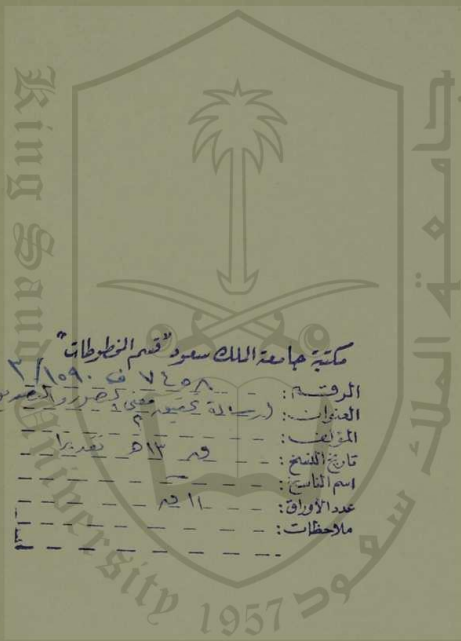 مكتبة جامعة الملك سعود "قسم المخطوطات"
الرقم: ٧٤٥٨ ف ١٥٩٠/٢
العنوان: (رسالة تحقيق معنى التصور والتصديق
المؤلف: ؟
تاريخ النسخ: ق ١٣ هـ تقديرا
اسم الناسخ: —
عدد الأوراق: ١١ ق
ملاحظات:
جامعة الملك سعود
King Saud University
1957